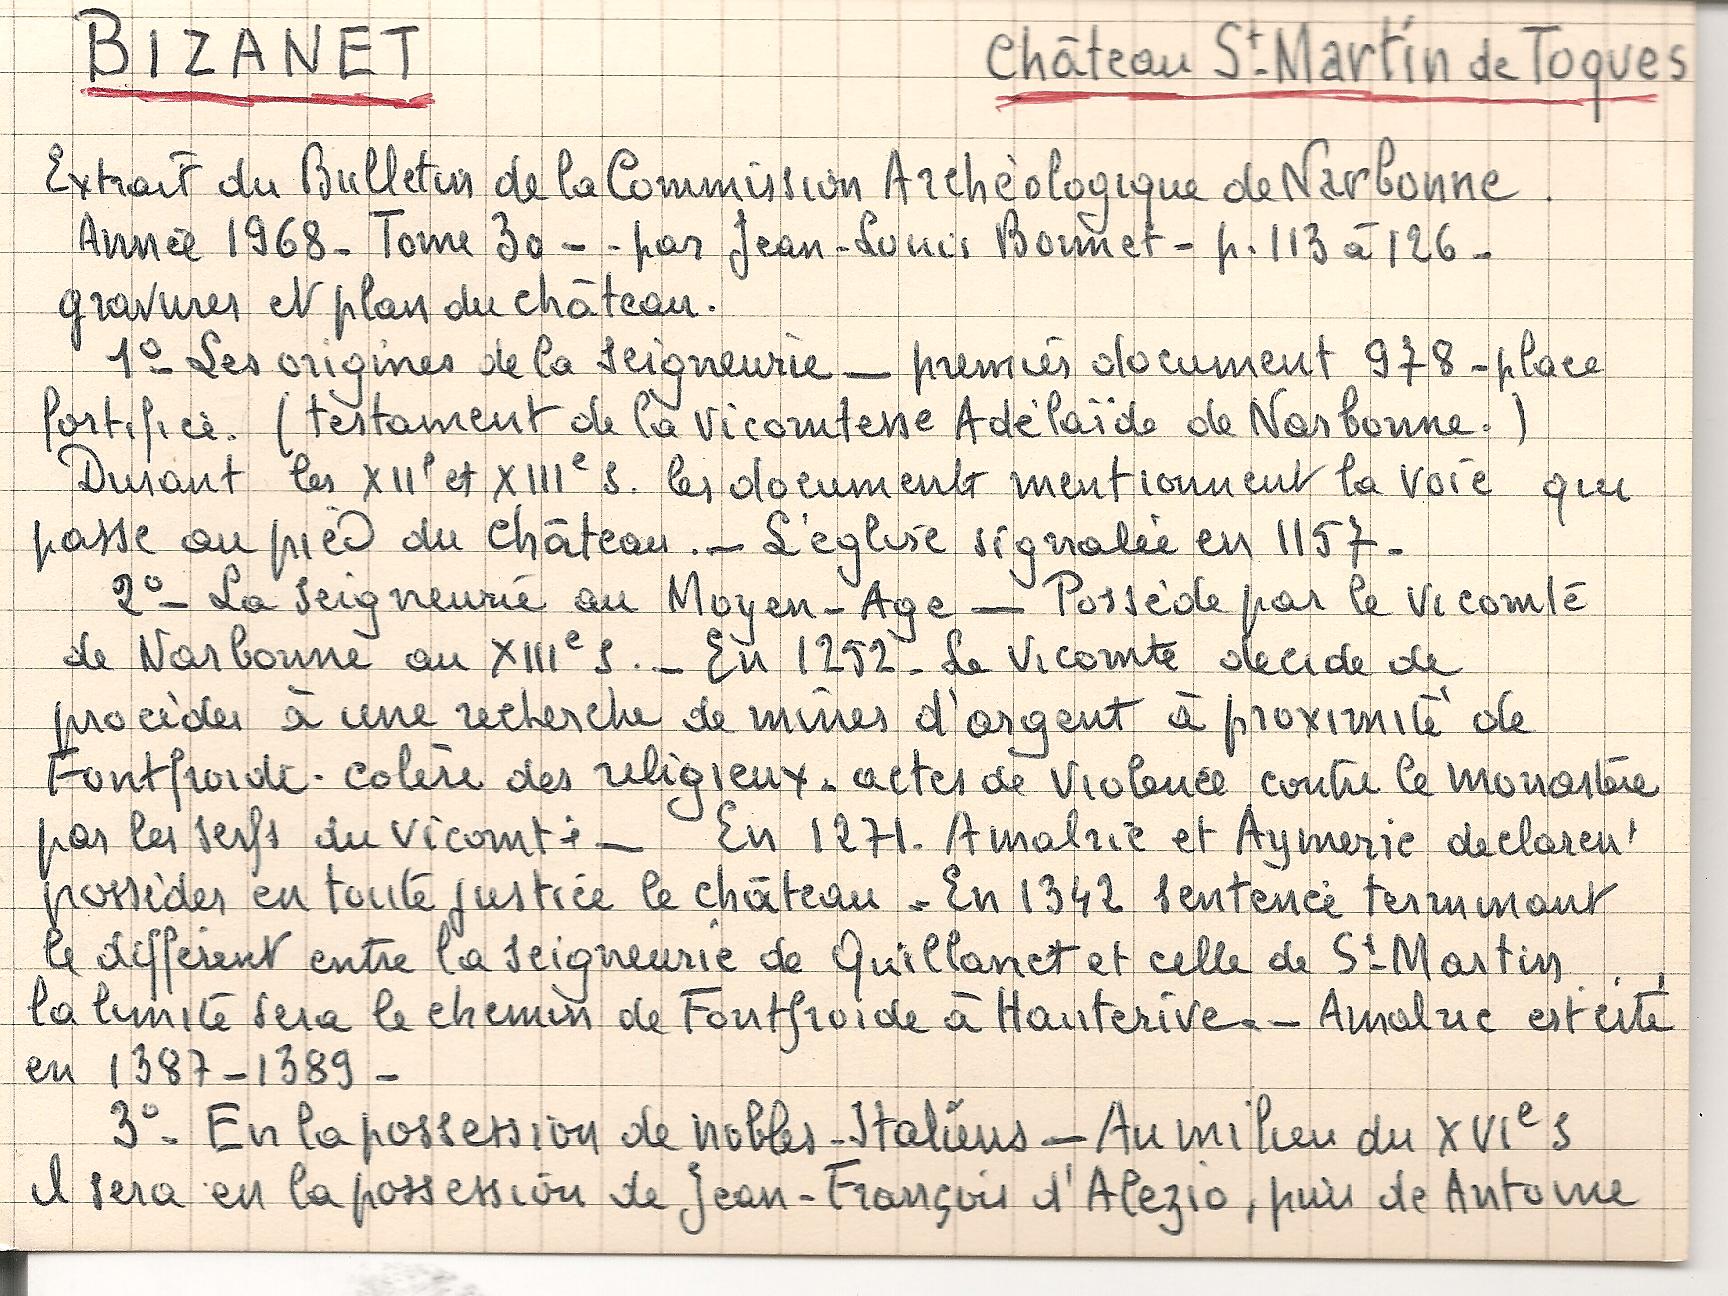 BIZANET
Château St Martin de Toques
Extrait du Bulletin de la Commission Archéologique de Narbonne.
Année 1968 - Tome 30 - - par Jean-Louis Bonnet - p. 113 à 126 -
gravures et plan du château.
1° - Les origines de la seigneurie — premier document 978 - place
fortifiée. (testament de la vicomtesse Adélaïde de Narbonne.)
Durant les XIIe et XIIIe s. les documents mentionnent la voie qui
passe au pied du château. - L'église signalée en 1157 -
2° - La seigneurie au Moyen-Age — Possédé par le vicomté
de Narbonne au XIIIe s. - En 1252 - Le vicomte decide de
procéder à une recherche de mines d'argent à proximité de
Fontfroide - colère des religieux - actes de violence contre le monastère
par les serfs du vicomté — En 1271. Amalric et Aymeric declarent
posséder en toute justice le château - En 1342 sentence terminant
le différent entre la seigneurie de Quillanet et celle de St Martin . . ,
la limite sera le chemin de Fontfroide à Hauterive. - Amalric est cité
en 1387 - 1389 -
3° - En la possession de nobles - Italiens — Au milieu du XVIe s
il sera en la possession de Jean-François d'Alezio, puis de Antoine